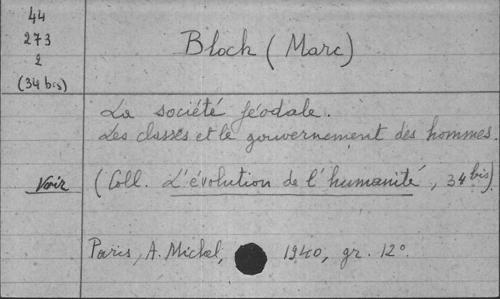 44
273
2
(34 bis)
Bloch (Marc)
La société féodale.
Les classes et le gouvernement des hommes.
Voir
(Coll. L'évolution de l'humanité, 34 bis)
Paris, A. Michel, 1940, gr. 12°.